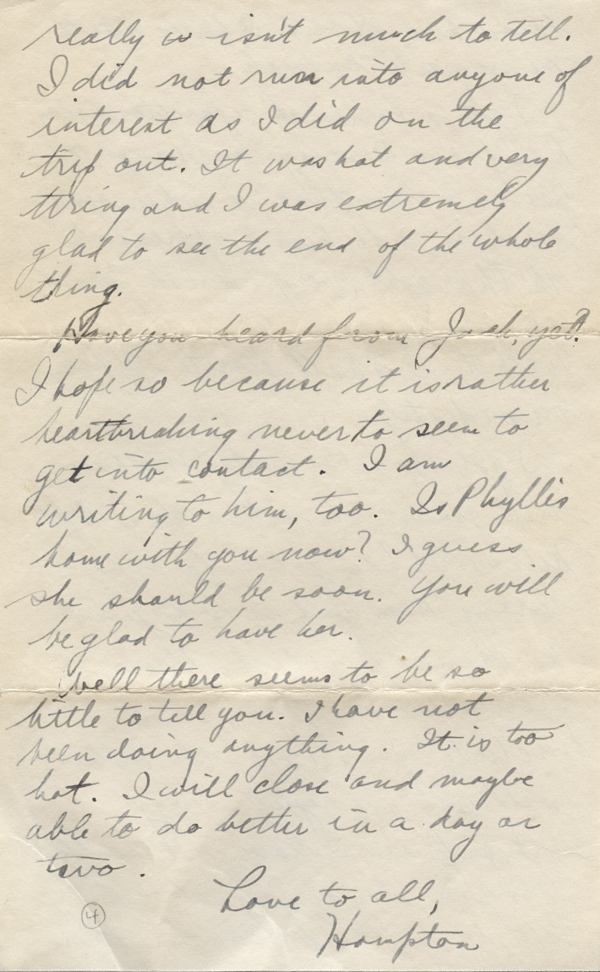 really is isn't much to tell.
I did not run into anyone of
interest as I did on the
trip out. It was hot and very
tiring and I was extremely
glad to see the end of the whole
thing.
Have you heard from Jack, yet?
I hope so because it is rather
heartbreaking never to seem to
get into contact. I am
writing to him, too. Is Phyllis
home with you now? I guess
she should be soon. You will
be glad to have her.
Well there seems to be so
little to tell you. I have not
been doing anything. It is too
hot. I will close and maybe
able to do better in a day or
two.
Love to all,
Hampton
4